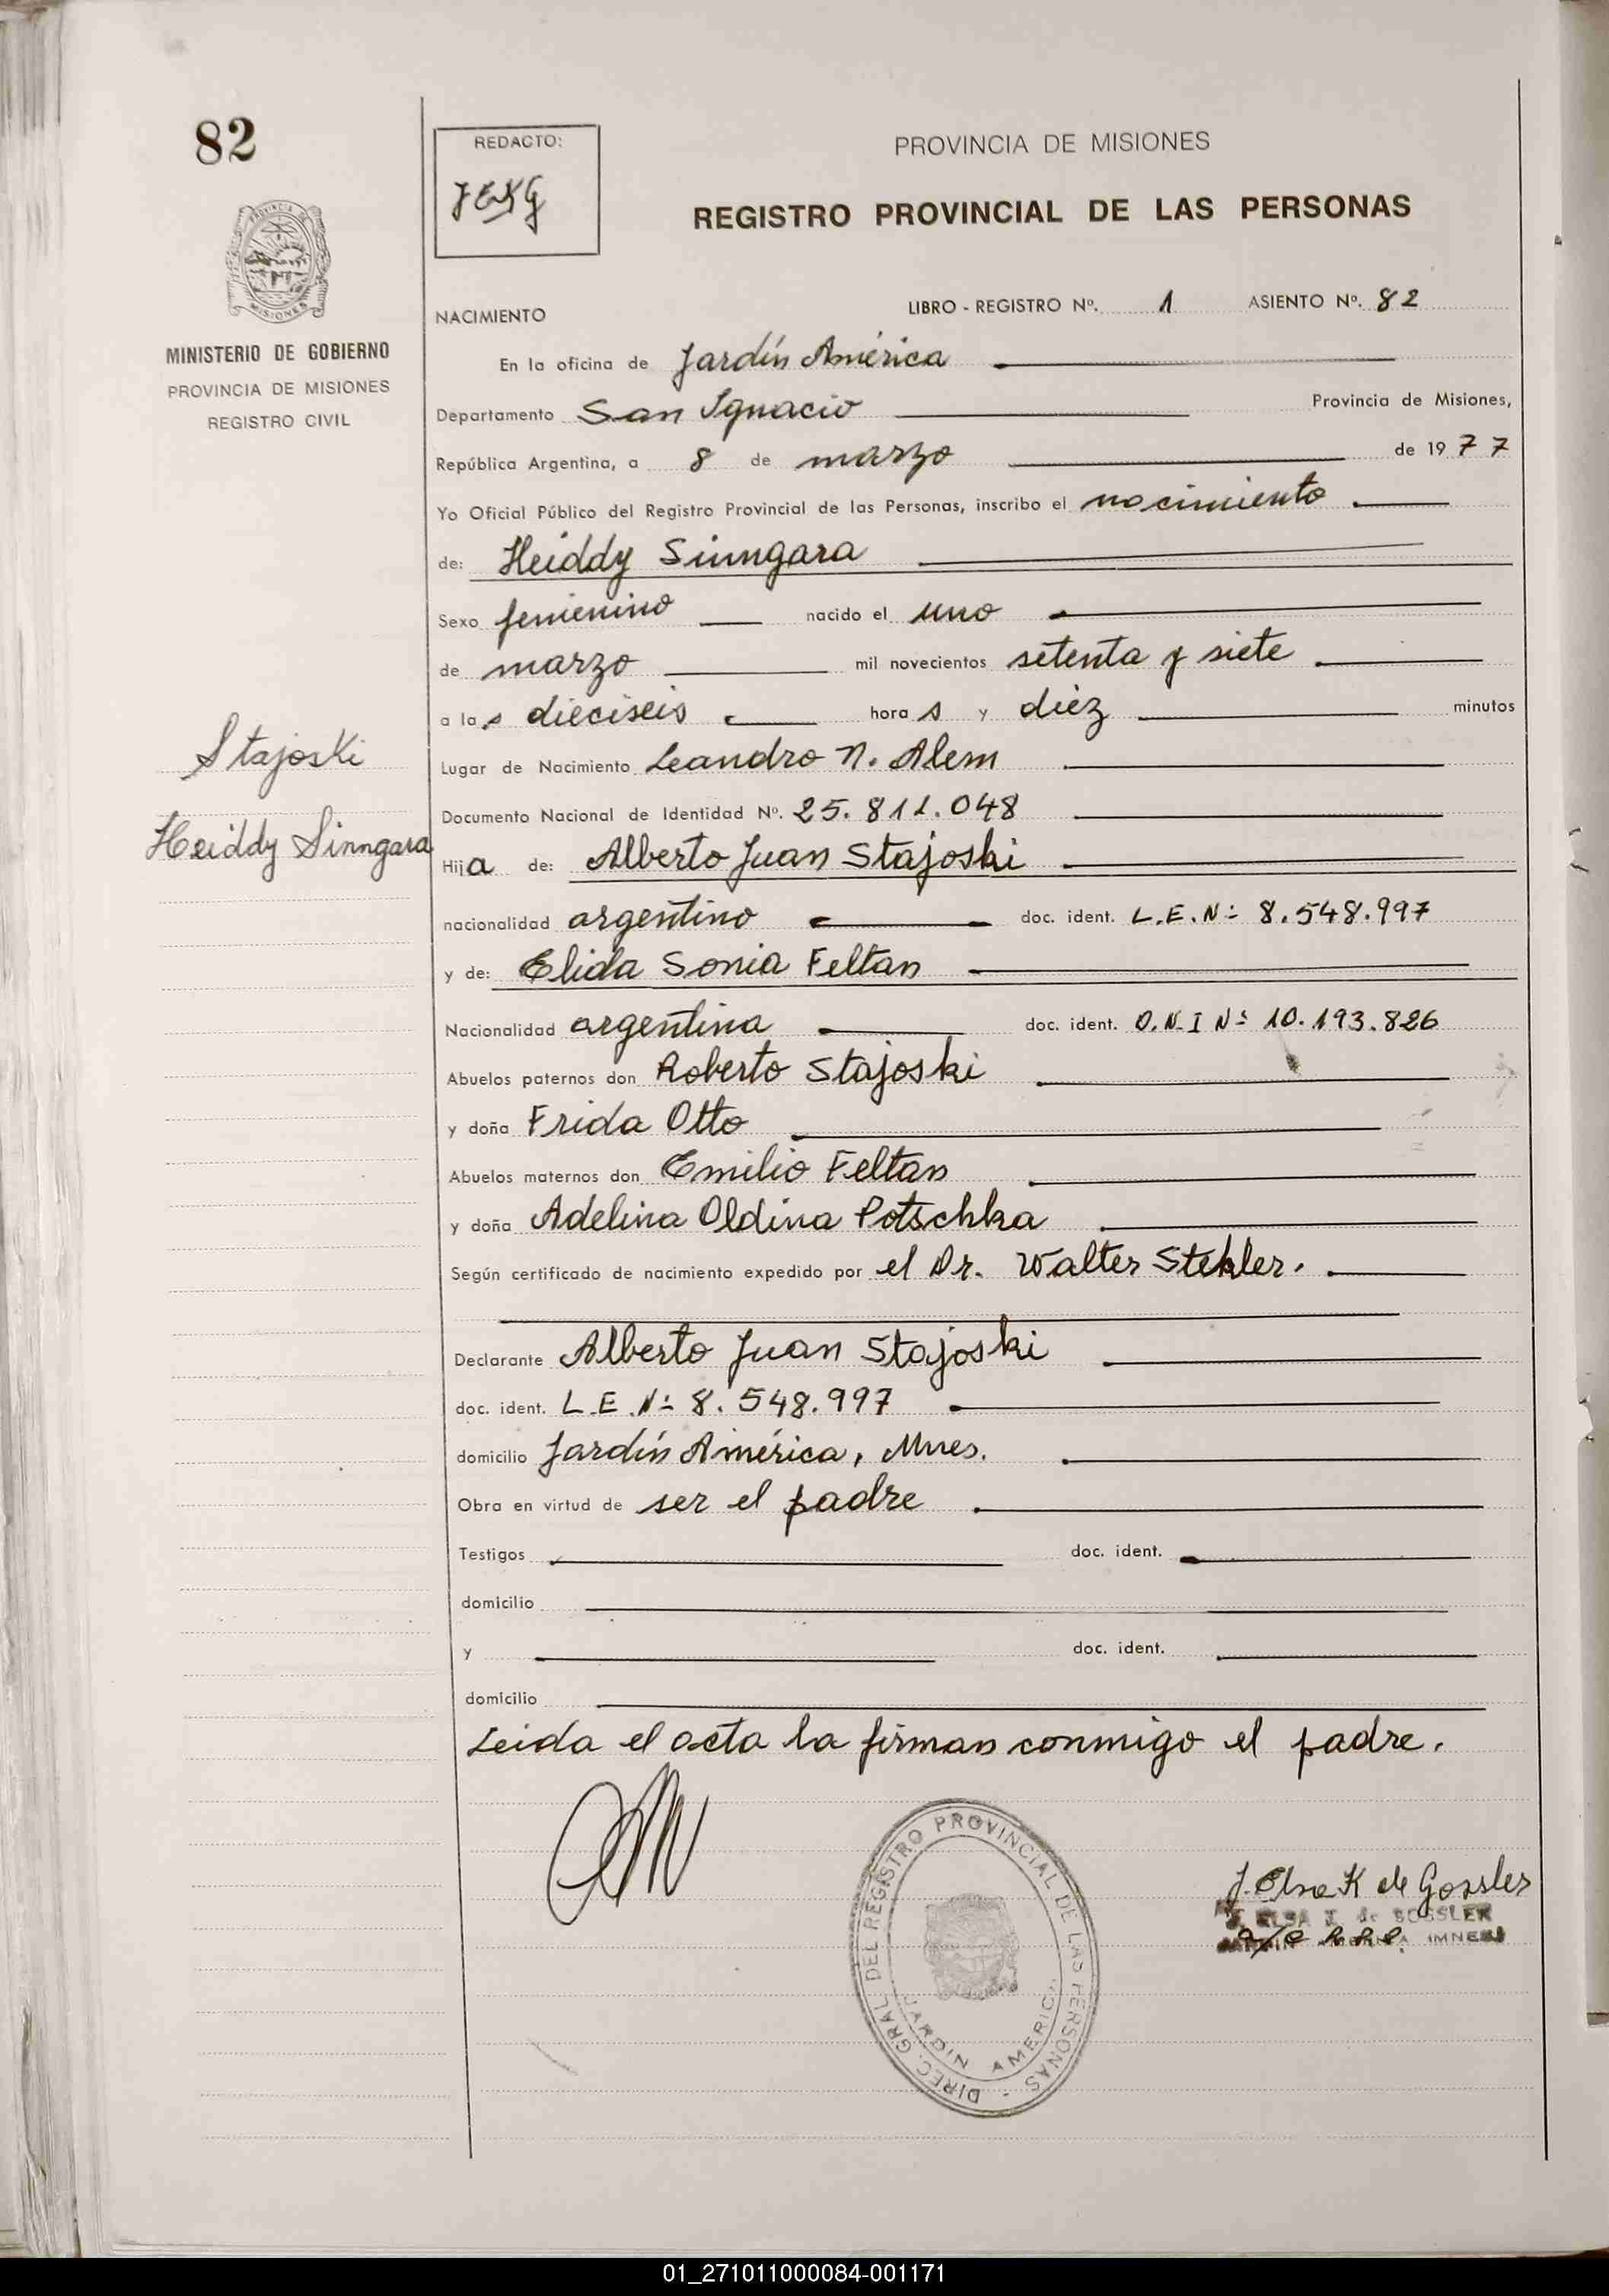 82
PROVINCIA DE MISIONES
MINISTERIO DE GOBIERNO
PROVINCIA DE MISIONES
REGISTRO CIVIL
Stajoski
Heiddy Sinngara
REDACTO:
JEKG
PROVINCIA DE MISIONES
REGISTRO PROVINCIAL DE LAS PERSONAS
NACIMIENTO LIBRO - REGISTRO Nº. 1 ASIENTO Nº. 82
En la oficina de Jardín América
Departamento San Ignacio Provincia de Misiones,
República Argentina, a 8 de marzo de 1977
Yo Oficial Público del Registro Provincial de las Personas, inscribo el nacimiento
de: Heiddy Sinngara
Sexo femenino nacido el uno
de marzo mil novecientos setenta y siete
a las dieciseis horas y diez minutos
Lugar de Nacimiento Leandro N. Alem
Documento Nacional de Identidad Nº. 25.811.048
Hija de: Alberto Juan Stajoski
nacionalidad argentino doc. ident. L.E.Nº 8.548.997
y de: Elida Sonia Feltan
Nacionalidad argentina doc. ident. D.N.I Nº 10.193.826
Abuelos paternos don Roberto Stajoski
y doña Frida Otto
Abuelos maternos don Emilio Feltan
y doña Adelina Oldina Potschka
Según certificado de nacimiento expedido por el Dr. Walter Stekler.
Declarante Alberto Juan Stajoski
doc. ident. L.E.Nº 8.548.997
domicilio Jardín América, Mnes.
Obra en virtud de ser el padre
Testigos doc. ident.
domicilio
y doc. ident.
domicilio
Leida el acta la firman conmigo el padre.
DIREC. GRAL. DEL REGISTRO PROVINCIAL DE LAS PERSONAS
JARDIN AMERICA
J. Elsa K de Gossler
ELSA de GOSSLER
01_271011000084-001171